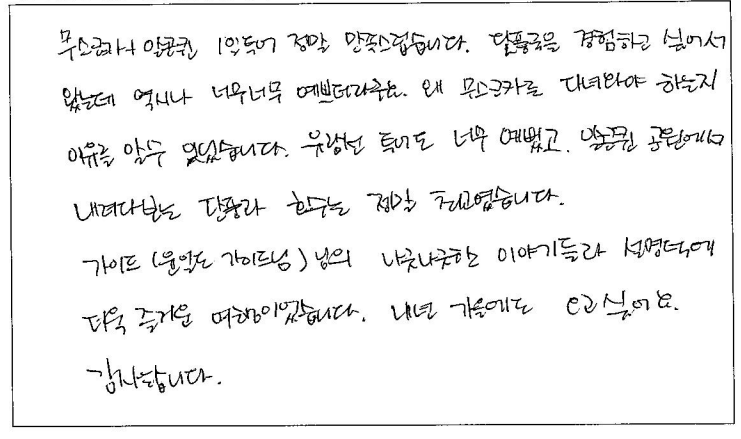 무스코카 알곤퀸 1일투어 정말 만족스럽습니다. 단풍국을 경험하고 싶어서
왔는데 역시나 너무너무 예쁘더라구요. 왜 무스코카로 다녀와야 하는지
이유를 알수 있었습니다. 유람선 투어도 너무 예뻤고, 알곤퀸 공원에서
내려다보는 단풍과 호수는 정말 최고였습니다.
가이드 ( 가이드님) 님의 나긋나긋한 이야기들과 설명덕에
더욱 즐거운 여행이었습니다. 내년 가을에도 오고싶어요.
감사합니다.